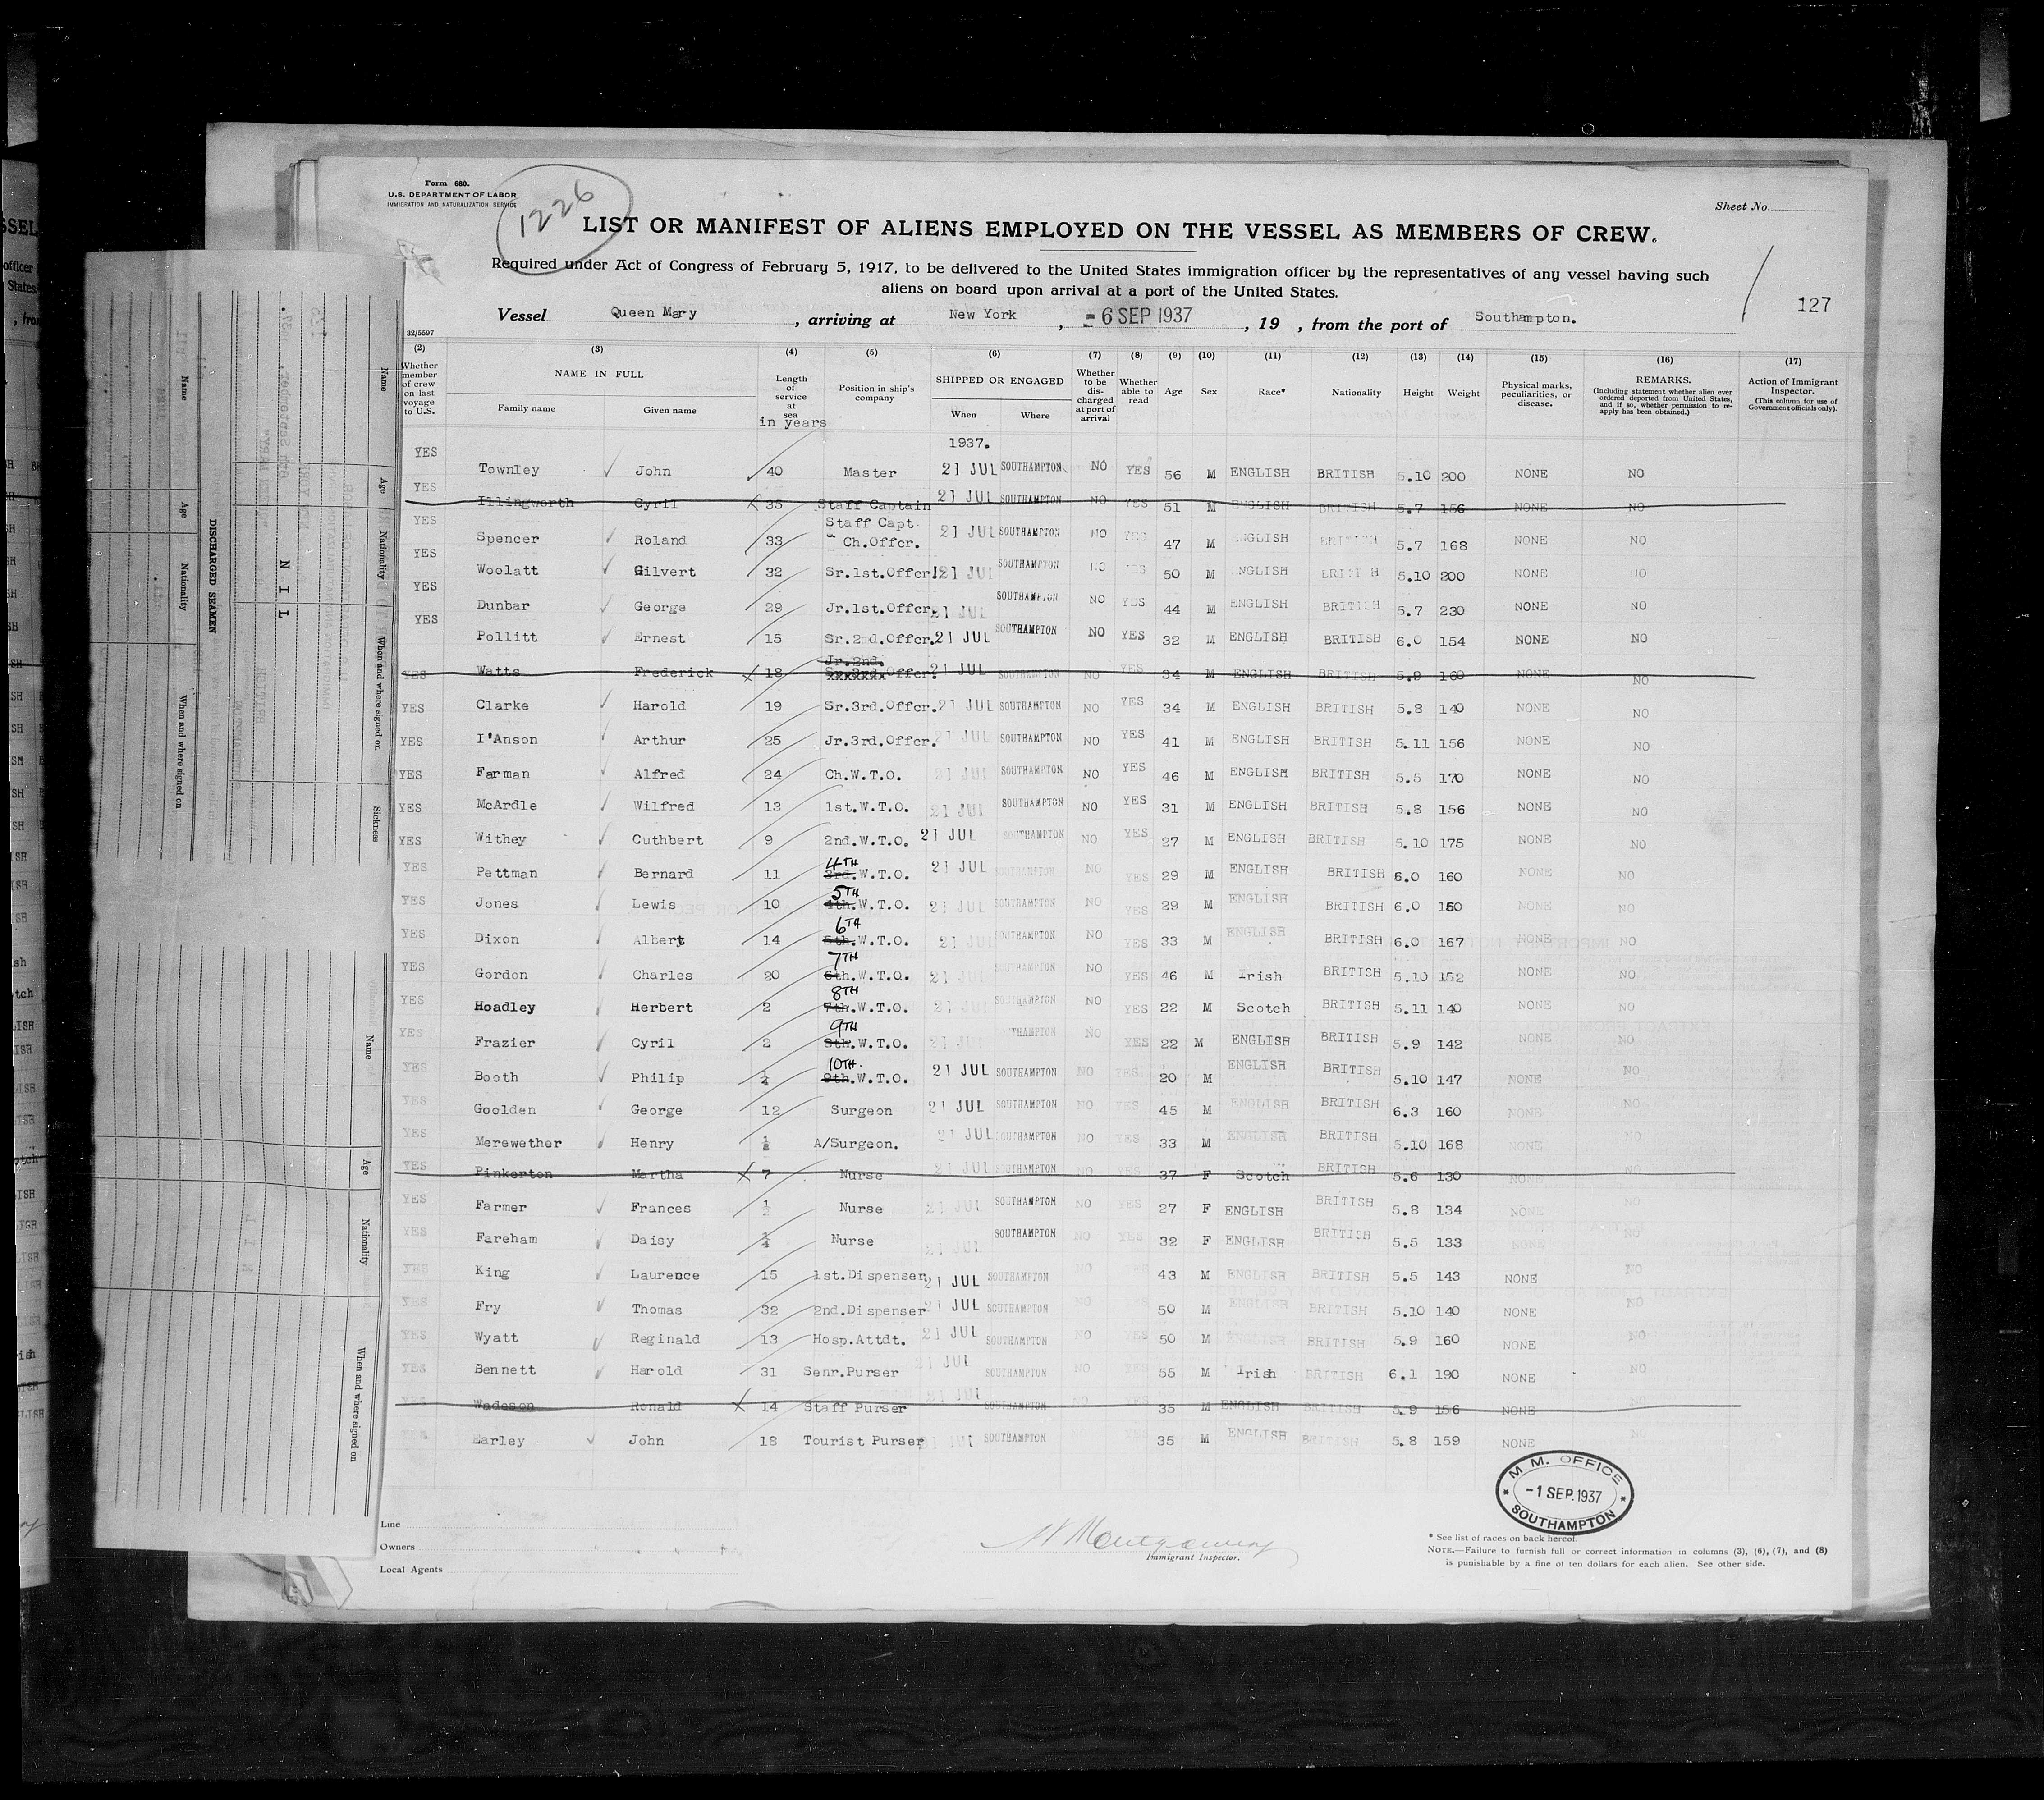 Form 680.
U.S. DEPARTMENT OF LABOR
IMMIGRATION AND NATURALIZATION SERVICE
1226
Sheet No.
LIST OR MANIFEST OF ALIENS EMPLOYED ON THE VESSEL AS MEMBERS OF CREW.
Required under Act of Congress of February 5, 1917, to be delivered to the United States immigration officer by the representatives of any vessel having such
aliens on board upon arrival at a port of the United States.
127
Vessel Queen Mary, arriving at New York, - 6 SEP 1937, 19 , from the port of Southampton.
32/5597
(2) (3) (4) (5) (6) (7) (8) (9) (10) (11) (12) (13) (14) (15) (16) (17)
Whether member of crew on last voyage to U.S. NAME IN FULL Family name Given name Length of service at sea in years Position in ship's company SHIPPED OR ENGAGED When Where Whether to be discharged at port of arrival Whether able to read Age Sex Race* Nationality Height Weight Physical marks, peculiarities, or disease. REMARKS. (Including statement whether alien ever ordered deported from United States, and if so, whether permission to re-apply has been obtained.) Action of Immigrant Inspector. (This column for use of Government officials only).
1937.
YES Townley John 40 Master 21 JUL SOUTHAMPTON NO YES 56 M ENGLISH BRITISH 5.10 200 NONE NO
YES Illingworth Cyril 35 Staff Captain 21 JUL SOUTHAMPTON NO YES 51 M ENGLISH BRITISH 5.7 156 NONE NO
YES Spencer Roland 33 Staff Capt. Ch.Offcr. 21 JUL SOUTHAMPTON NO YES 47 M ENGLISH BRITISH 5.7 168 NONE NO
YES Woolatt Gilvert 32 Sr.1st.Offcr. 21 JUL SOUTHAMPTON NO YES 50 M ENGLISH BRITISH 5.10 200 NONE NO
YES Dunbar George 29 Jr.1st.Offcr. 21 JUL SOUTHAMPTON NO YES 44 M ENGLISH BRITISH 5.7 230 NONE NO
YES Pollitt Ernest 15 Sr.2nd.Offcr. 21 JUL SOUTHAMPTON NO YES 32 M ENGLISH BRITISH 6.0 154 NONE NO
YES Watts Frederick 18 Jr.2nd. Offcr. 21 JUL SOUTHAMPTON NO YES 34 M ENGLISH BRITISH 5.9 160 NONE NO
YES Clarke Harold 19 Sr.3rd.Offcr. 21 JUL SOUTHAMPTON NO YES 34 M ENGLISH BRITISH 5.8 140 NONE NO
YES I'Anson Arthur 25 Jr.3rd.Offcr. 21 JUL SOUTHAMPTON NO YES 41 M ENGLISH BRITISH 5.11 156 NONE NO
YES Farman Alfred 24 Ch.W.T.O. 21 JUL SOUTHAMPTON NO YES 46 M ENGLISH BRITISH 5.5 170 NONE NO
YES McArdle Wilfred 13 1st.W.T.O. 21 JUL SOUTHAMPTON NO YES 31 M ENGLISH BRITISH 5.8 156 NONE NO
YES Withey Cuthbert 9 2nd.W.T.O. 21 JUL SOUTHAMPTON NO YES 27 M ENGLISH BRITISH 5.10 175 NONE NO
YES Pettman Bernard 11 4TH 3rd.W.T.O. 21 JUL SOUTHAMPTON NO YES 29 M ENGLISH BRITISH 6.0 160 NONE NO
YES Jones Lewis 10 5TH 4th.W.T.O. 21 JUL SOUTHAMPTON NO YES 29 M ENGLISH BRITISH 6.0 NONE NO
YES Dixon Albert 14 6TH 5th.W.T.O. 21 JUL SOUTHAMPTON NO YES 33 M ENGLISH BRITISH 6.0 167 NONE NO
YES Gordon Charles 20 7TH 6th.W.T.O. 21 JUL SOUTHAMPTON NO YES 46 M Irish BRITISH 5.10 152 NONE NO
YES Hoadley Herbert 2 8TH 7th.W.T.O. 21 JUL SOUTHAMPTON NO YES 22 M Scotch BRITISH 5.11 140 NONE NO
YES Frazier Cyril 2 9TH 8th.W.T.O. 21 JUL SOUTHAMPTON NO YES 22 M ENGLISH BRITISH 5.9 142 NONE NO
YES Booth Philip 10TH. 9th.W.T.O. 21 JUL SOUTHAMPTON NO YES 20 M ENGLISH BRITISH 5.10 147 NONE NO
YES Goolden George 12 Surgeon 21 JUL SOUTHAMPTON NO YES 45 M ENGLISH BRITISH 6.3 160 NONE NO
YES Merewether Henry A/Surgeon. 21 JUL SOUTHAMPTON NO YES 33 M ENGLISH BRITISH 5.10 168 NONE NO
YES Pinkerton Martha 7 Nurse 21 JUL SOUTHAMPTON NO YES 37 F Scotch BRITISH 5.6 130 NONE NO
YES Farmer Frances Nurse 21 JUL SOUTHAMPTON NO YES 27 F ENGLISH BRITISH 5.8 134 NONE NO
YES Fareham Daisy Nurse 21 JUL SOUTHAMPTON NO YES 32 F ENGLISH BRITISH 5.5 133 NONE NO
YES King Laurence 15 1st.Dispenser 21 JUL SOUTHAMPTON NO YES 43 M ENGLISH BRITISH 5.5 143 NONE NO
YES Fry Thomas 32 2nd.Dispenser 21 JUL SOUTHAMPTON NO YES 50 M ENGLISH BRITISH 5.10 140 NONE NO
YES Wyatt Reginald 13 Hosp.Attdt. 21 JUL SOUTHAMPTON NO YES 50 M ENGLISH BRITISH 5.9 160 NONE NO
YES Bennett Harold 31 Senr.Purser 21 JUL SOUTHAMPTON NO YES 55 M Irish BRITISH 6.1 190 NONE NO
YES Wadeson Ronald 14 Staff Purser 21 JUL SOUTHAMPTON NO YES 35 M ENGLISH BRITISH 5.9 156 NONE
YES Earley John 18 Tourist Purser 21 JUL SOUTHAMPTON YES 35 M ENGLISH BRITISH 5.8 159 NONE
M. M. OFFICE
-1 SEP.1937
SOUTHAMPTON
Line
Owners
Local Agents
Montgomery
Immigrant Inspector.
* See list of races on back hereof.
NOTE.—Failure to furnish full or correct information in columns (3), (6), (7), and (8)
is punishable by a fine of ten dollars for each alien. See other side.
Name
Age
Nationality
When and where signed on
DISCHARGED SEAMEN
NIL
Name
Age
Nationality
When and where signed on.
Sickness
Name
Age
Nationality
When and where signed on